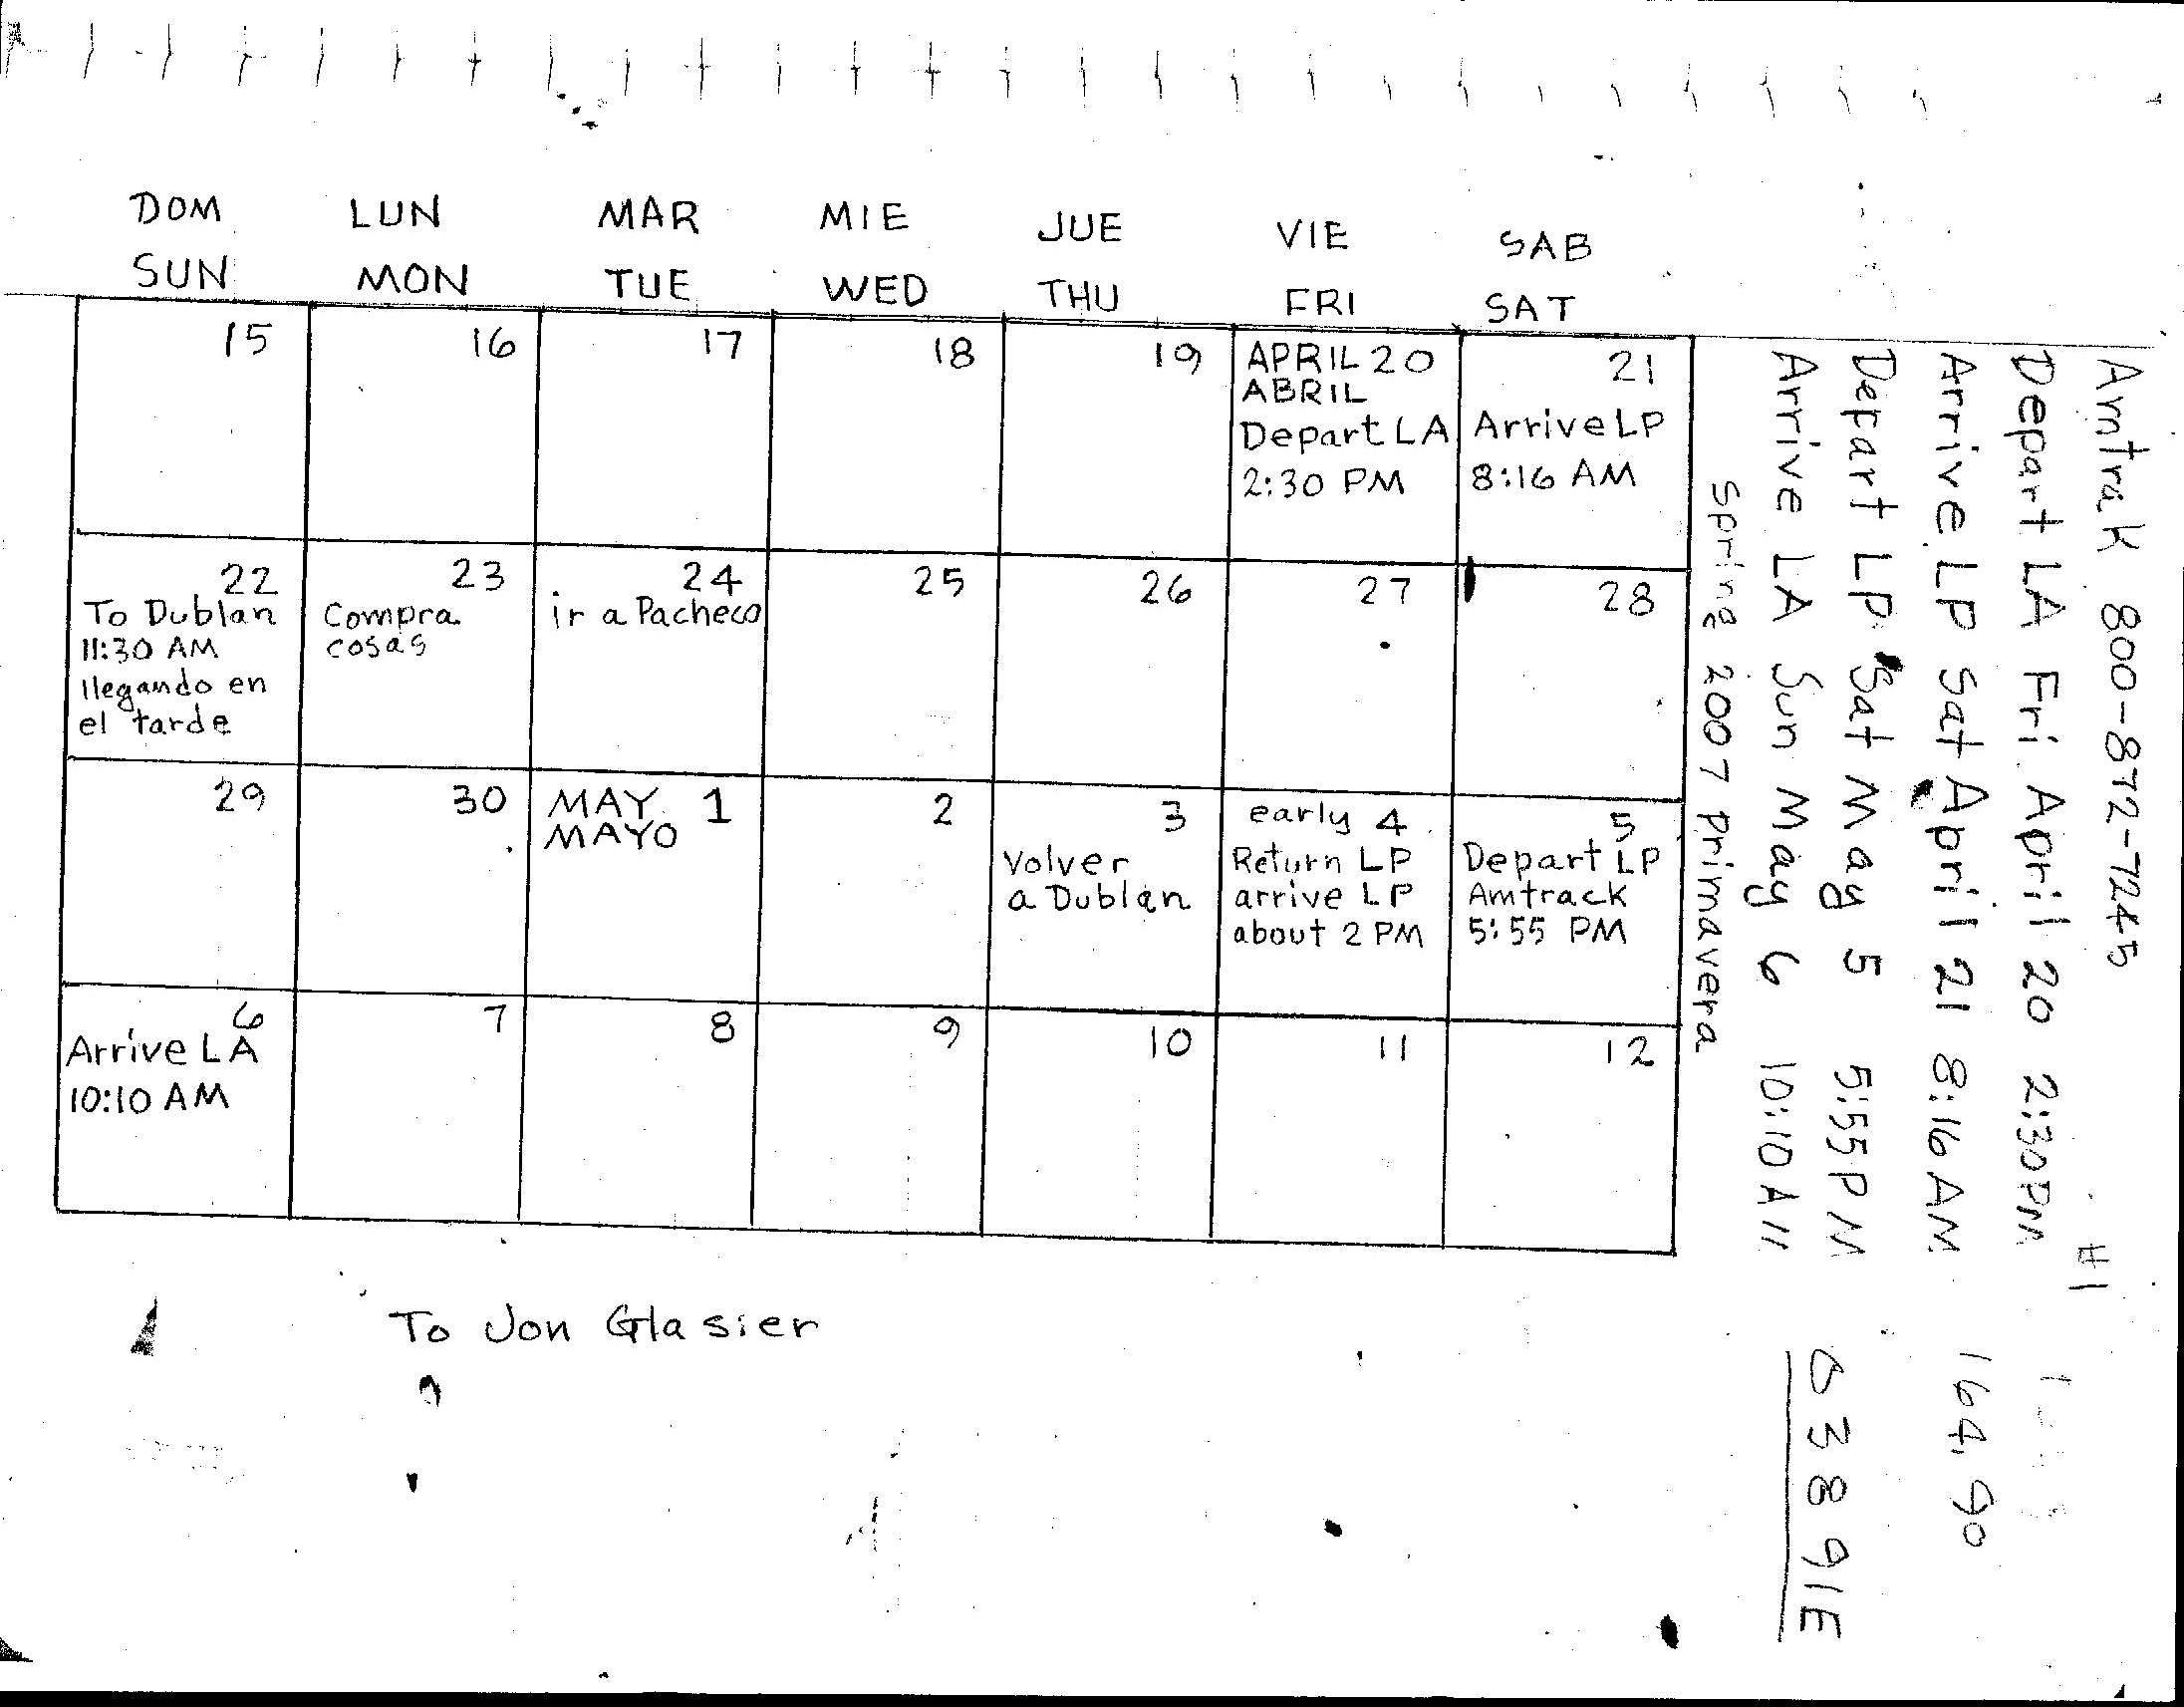 DOM LUN MAR MIE JUE VIE SAB
SUN MON TUE WED THU FRI SAT
15
16
17
18
19
APRIL 20
ABRIL
Depart LA
2:30 PM
21
Arrive LP
8:16 AM
22
To Dublan
11:30 AM
llegando en
el tarde
23
Compra
cosas
24
ir a Pacheco
25
26
27
28
29
30
MAY 1
MAYO
2
3
Volver
a Dublan
early 4
Return LP
arrive LP
about 2 PM
5
Depart LP
Amtrack
5:55 PM
6
Arrive LA
10:10 AM
7
8
9
10
11
12
To Jon Glasier
Amtrak 800-872-7245 #1
Depart LA Fri April 20 2:30PM
Arrive LP Sat April 21 8:16 AM 164.90
Depart LP Sat May 5 5:55PM
Arrive LA Sun May 6 10:10 A
Spring 2007 primavera
03891E